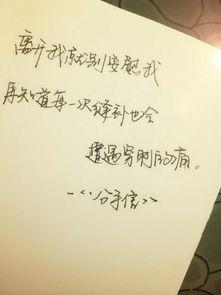 离开我就别安慰我
要知道每一次缝补也会
遭遇穿刺的痛.
—《分手信》